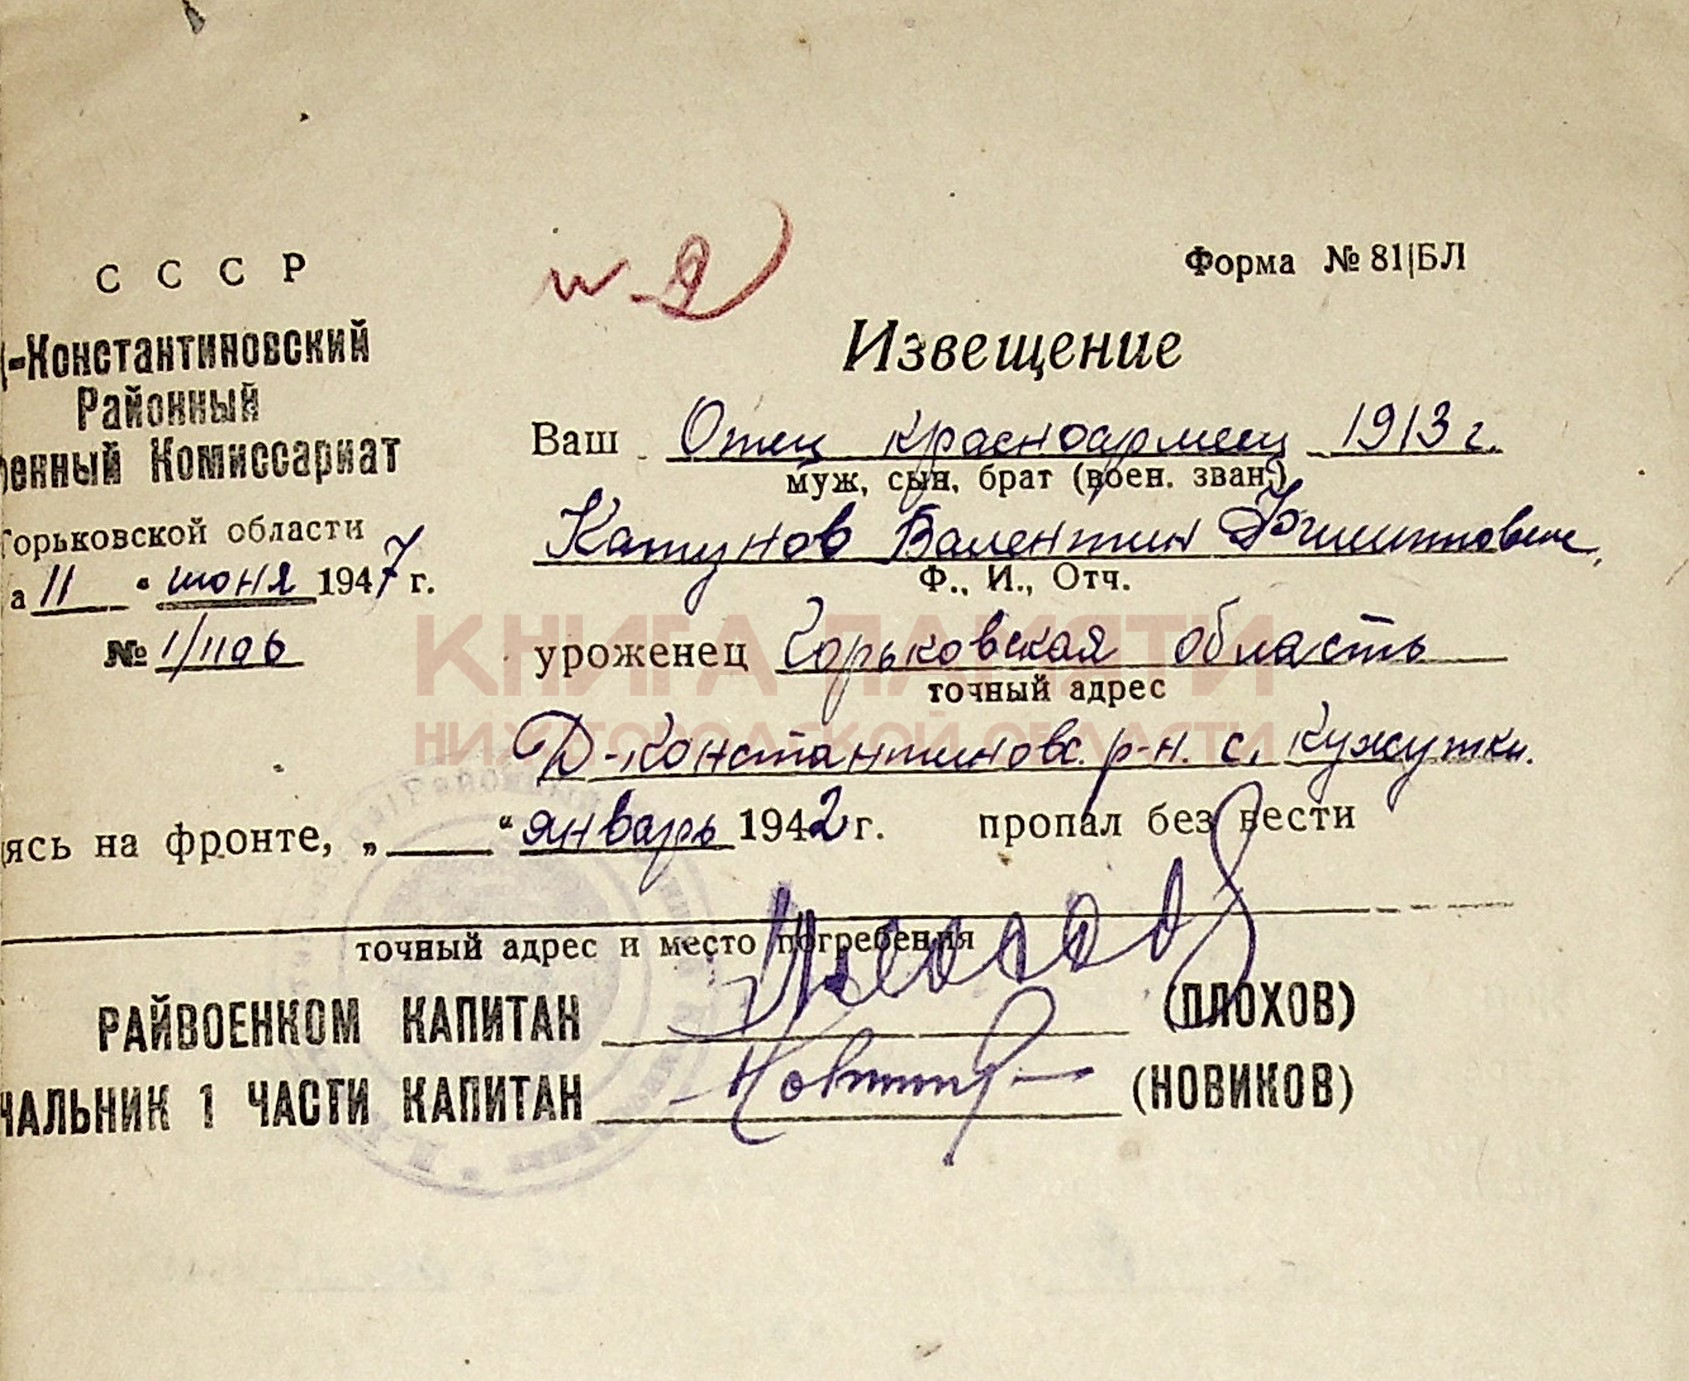 СССР
Форма № 81|БЛ
-Константиновский
Районный
енный Комиссариат
Горьковской области
а 11 " июня 1947 г.
№ 1/1106
Извещение
Ваш Отец красноармеец 1913 г.
муж, сын, брат (воен. зван.)
Катунов Валентин Филиппович,
Ф., И., Отч.
уроженец Горьковская область
точный адрес
Д-Константиновс. р-н. с. Кужутки.
ясь на фронте, „ “ январь 1942 г. пропал без вести
точный адрес и место погребения
РАЙВОЕНКОМ КАПИТАН (ПЛОХОВ)
ЧАЛЬНИК 1 ЧАСТИ КАПИТАН (НОВИКОВ)
КНИГА ПАМЯТИ
НИЖЕГОРОДСКОЙ ОБЛАСТИ